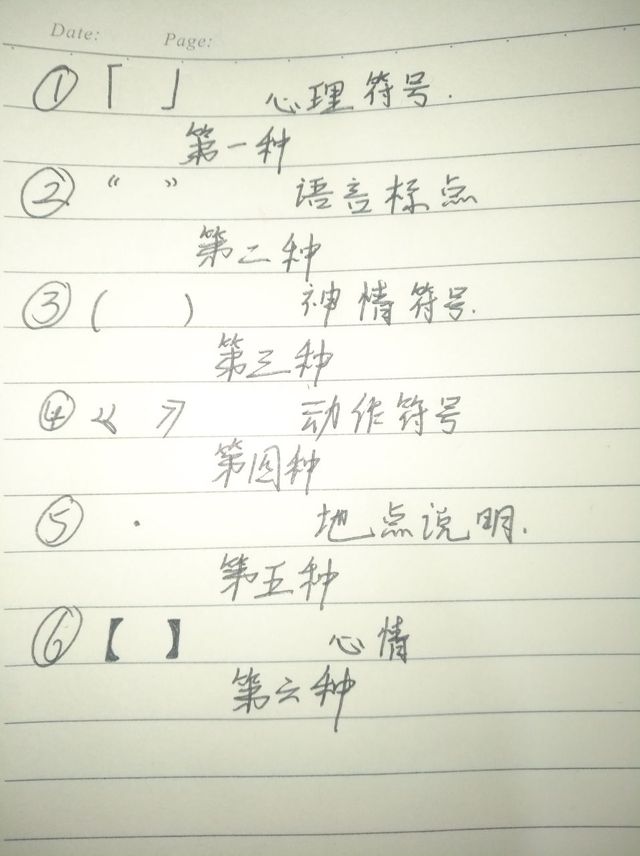 Date: Page:
① 「 」 心理符号.
第一种
② “ ” 语言标点
第二种
③ ( ) 神情符号.
第三种
④ 《 》 动作符号
第四种
⑤ · 地点说明.
第五种
⑥ 【 】 心情
第六种